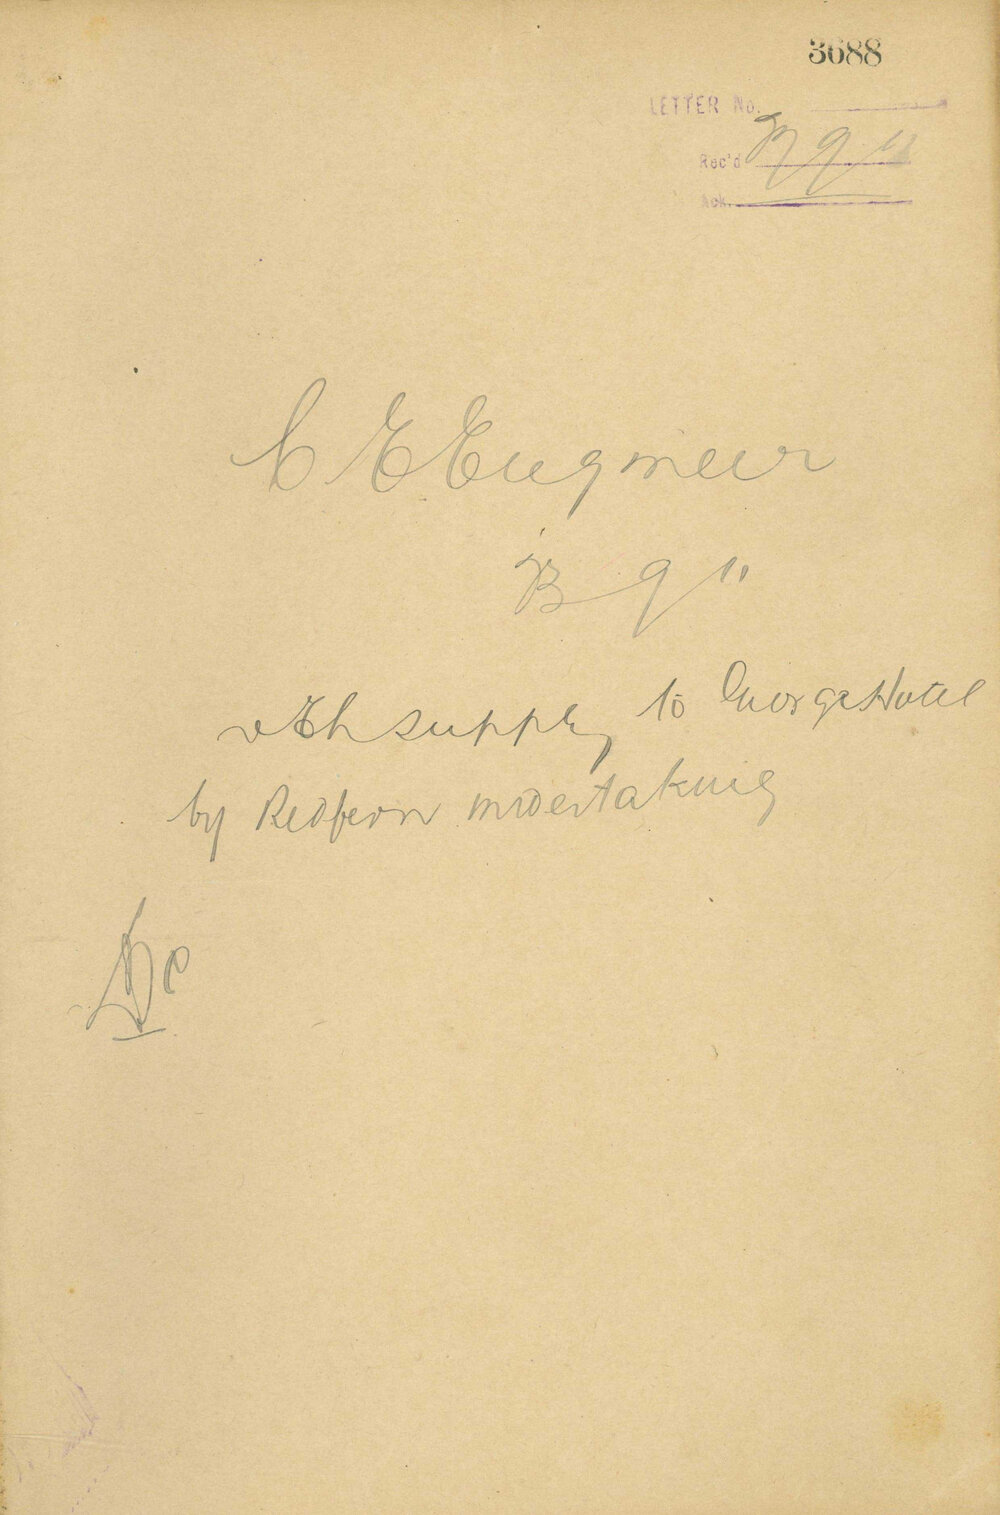 3688
LETTER No.
Rec'd 13 9 11
Ack.
C E Engineer
13 9 11
supply to George Hotel
by Redfern undertaking